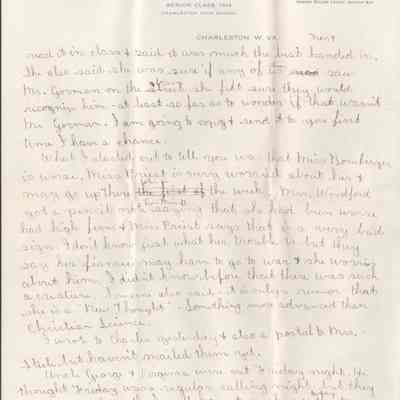 SENIOR CLASS, 1914
CHARLESTON HIGH SCHOOL
CHARLESTON W. VA.
read it in class & said it was much the best handed in.
She also said she was sure if any of us saw
Mr. Gorman on the street she felt sure they would
recognize him - at least so far as to wonder if that wasn't
Mr. Gorman. I am going to copy & send it to you first
time I have a chance.
What I started out to tell you was that Miss
is worse. Miss Priest is very worried about her &
may go up there the first of the week. Mrs. Woodford
got a postal not saying that she had been worse
had high fever & Miss Priest says that is a very bad
sign. I don't know just what her trouble is but they
say her fiancee may have to go to war & she worries
about him. I didn't know before that there was such
a creature. also said it is only a rumor that
she is a "New Thought" - Something more advanced than
Christian Science.
I wrote to Charlie yesterday & also a postal to Mrs.
but haven't mailed them yet.
Uncle George & Virginia were out Friday night. He
thought Friday was a regular calling night but they